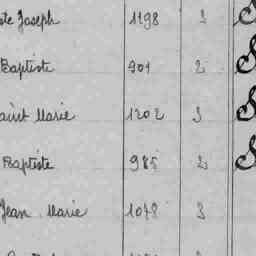 ste Joseph 1198 3
Baptiste 901 2
aint Marie 1202 3
Baptiste 985 2
Jean Marie 1048 3